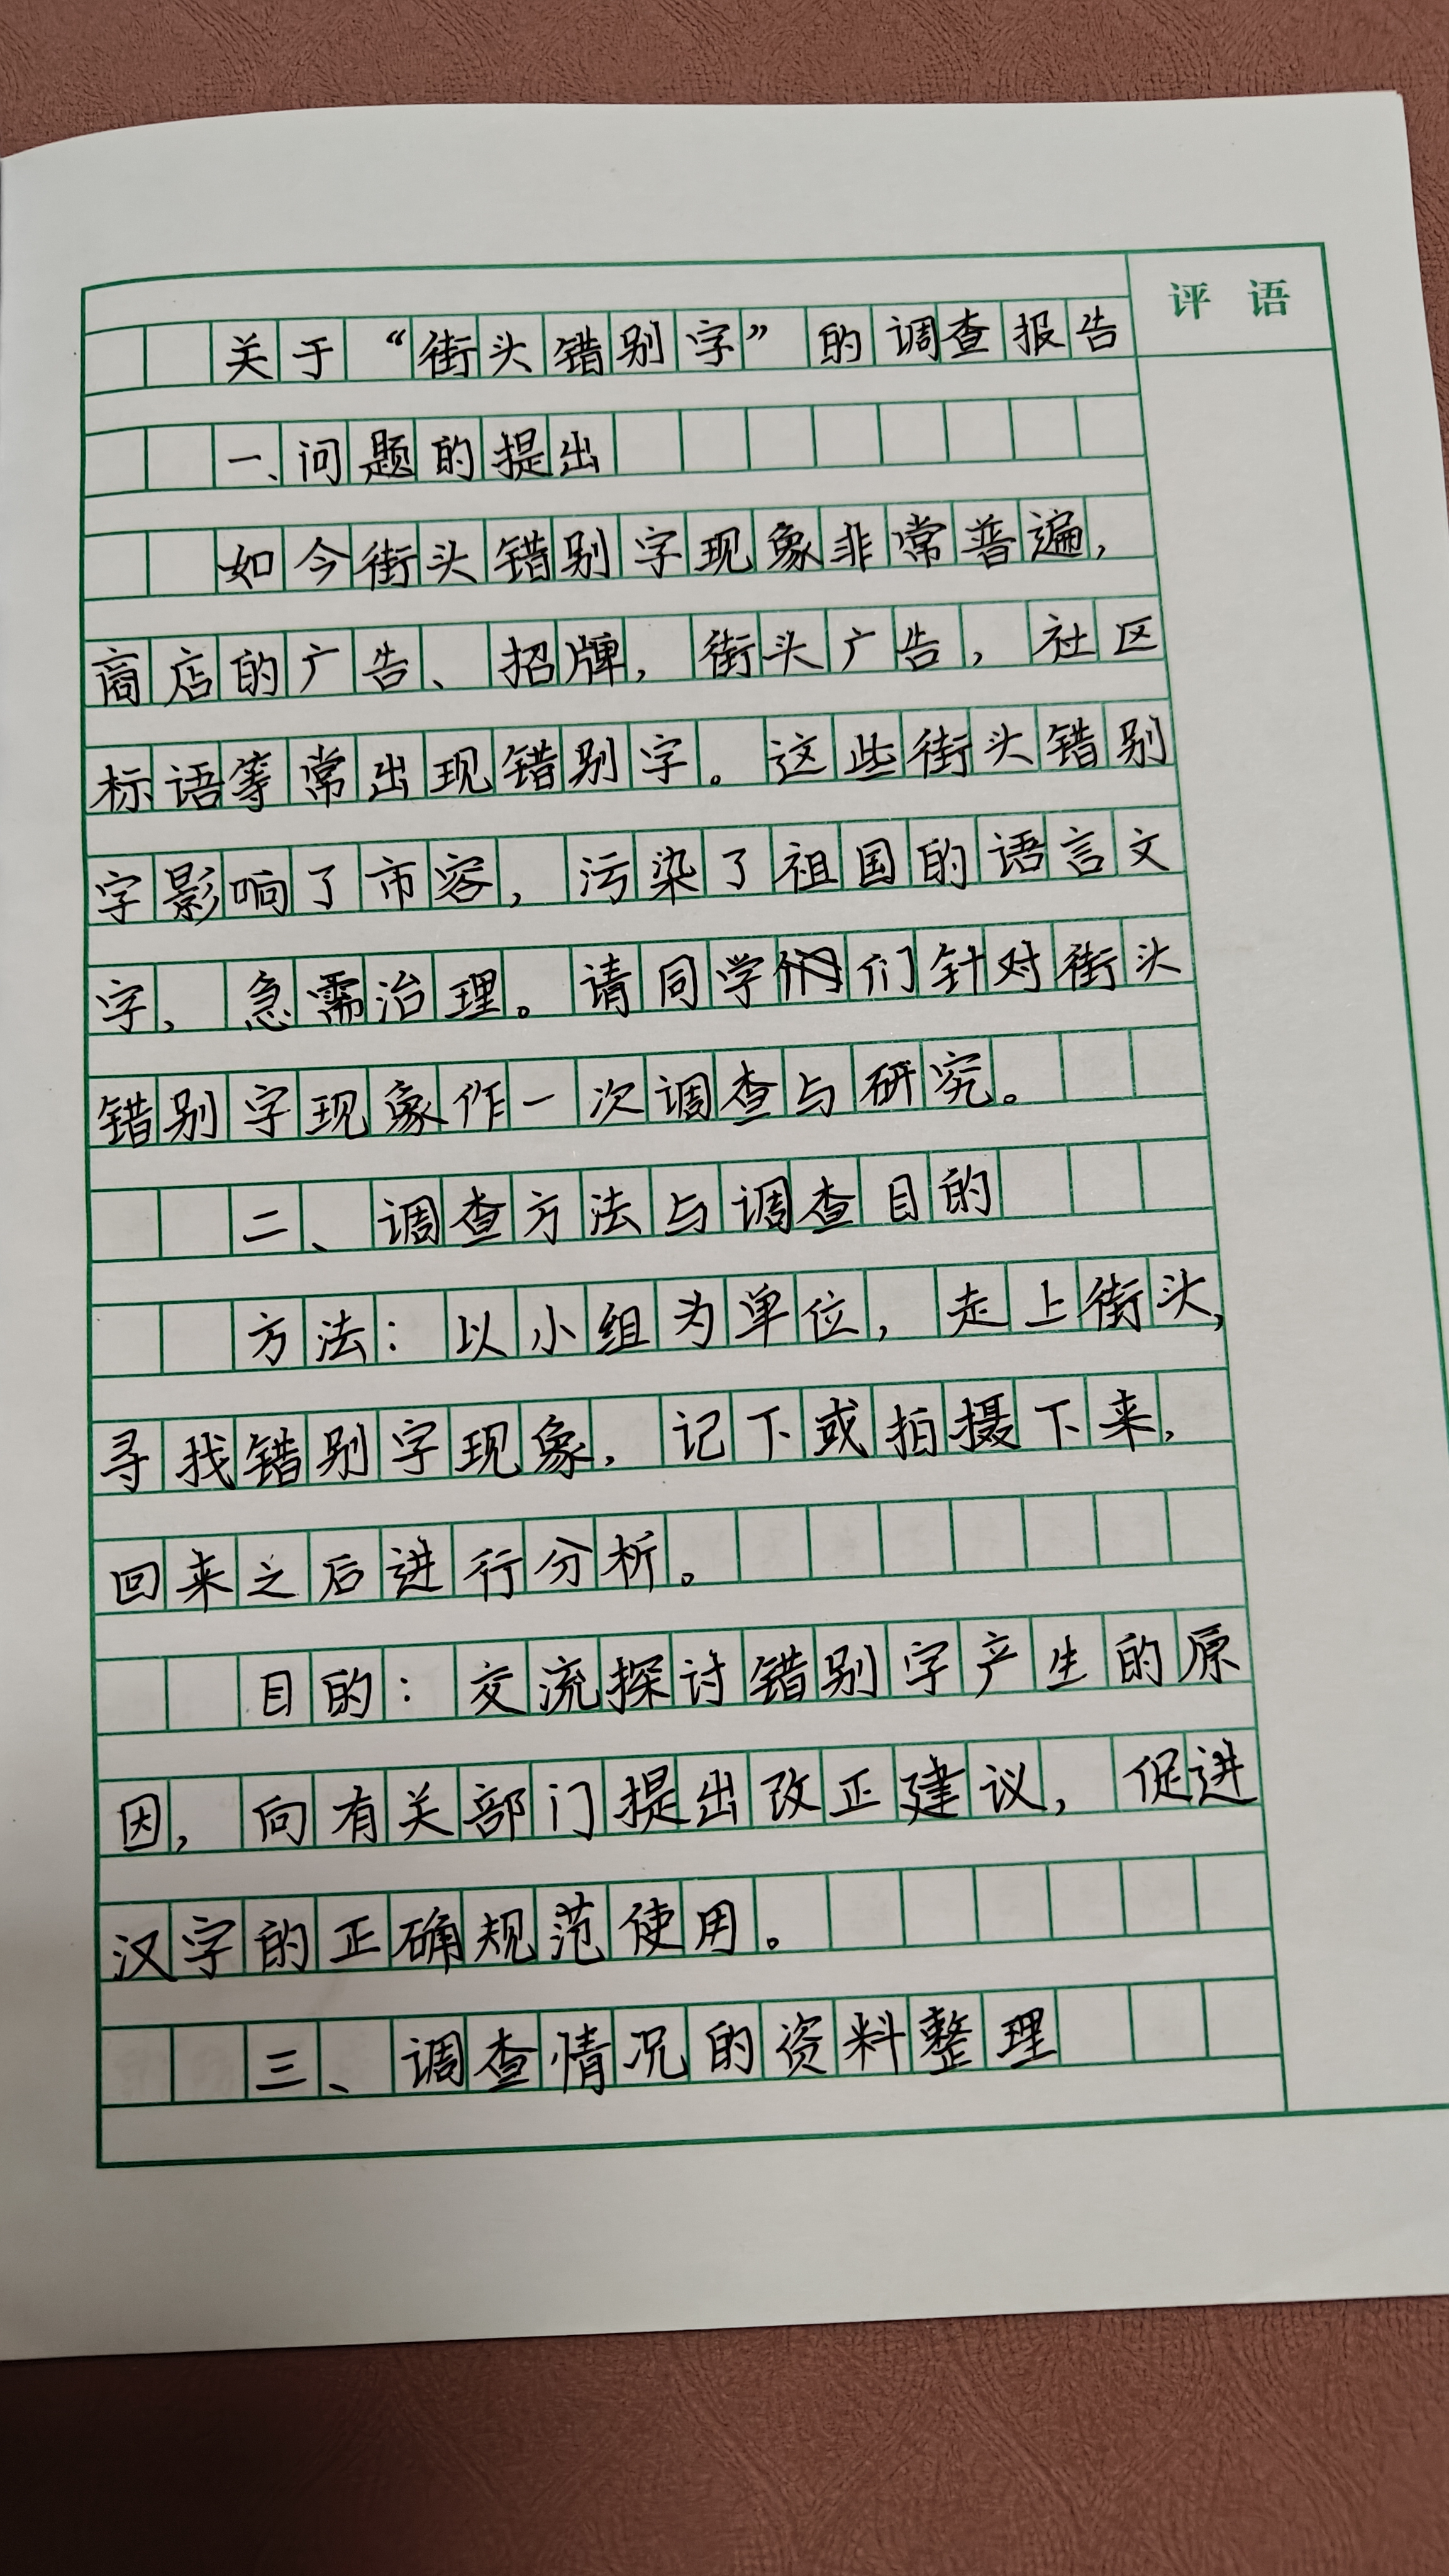 评语
关于“街头错别字”的调查报告
一、问题的提出
如今街头错别字现象非常普遍，
商店的广告、招牌，街头广告，社区
标语等常出现错别字。这些街头错别
字影响了市容，污染了祖国的语言文
字，急需治理。请同学们针对街头
错别字现象作一次调查与研究。
二、调查方法与调查目的
方法：以小组为单位，走上街头，
寻找错别字现象，记下或拍摄下来，
回来之后进行分析。
目的：交流探讨错别字产生的原
因，向有关部门提出改正建议，促进
汉字的正确规范使用。
三、调查情况的资料整理